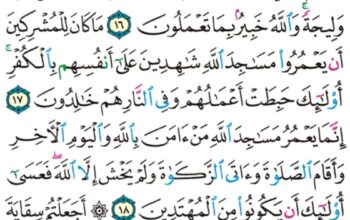 وَلِيجَةً ۚ وَٱللَّهُ خَبِيرٌۢ بِمَا تَعْمَلُونَ ١٦ مَا كَانَ لِلْمُشْرِكِينَ
أَن يَعْمُرُوا۟ مَسَٰجِدَ ٱللَّهِ شَٰهِدِينَ عَلَىٰٓ أَنفُسِهِم بِٱلْكُفْرِ ۚ
أُو۟لَٰٓئِكَ حَبِطَتْ أَعْمَٰلُهُمْ وَفِى ٱلنَّارِ هُمْ خَٰلِدُونَ ١٧
إِنَّمَا يَعْمُرُ مَسَٰجِدَ ٱللَّهِ مَنْ ءَامَنَ بِٱللَّهِ وَٱلْيَوْمِ ٱلْءَاخِرِ
وَأَقَامَ ٱلصَّلَوٰةَ وَءَاتَى ٱلزَّكَوٰةَ وَلَمْ يَخْشَ إِلَّا ٱللَّهَ ۖ فَعَسَىٰٓ
أُو۟لَٰٓئِكَ أَن يَكُونُوا۟ مِنَ ٱلْمُهْتَدِينَ ١٨ ۞ أَجَعَلْتُمْ سِقَايَةَ